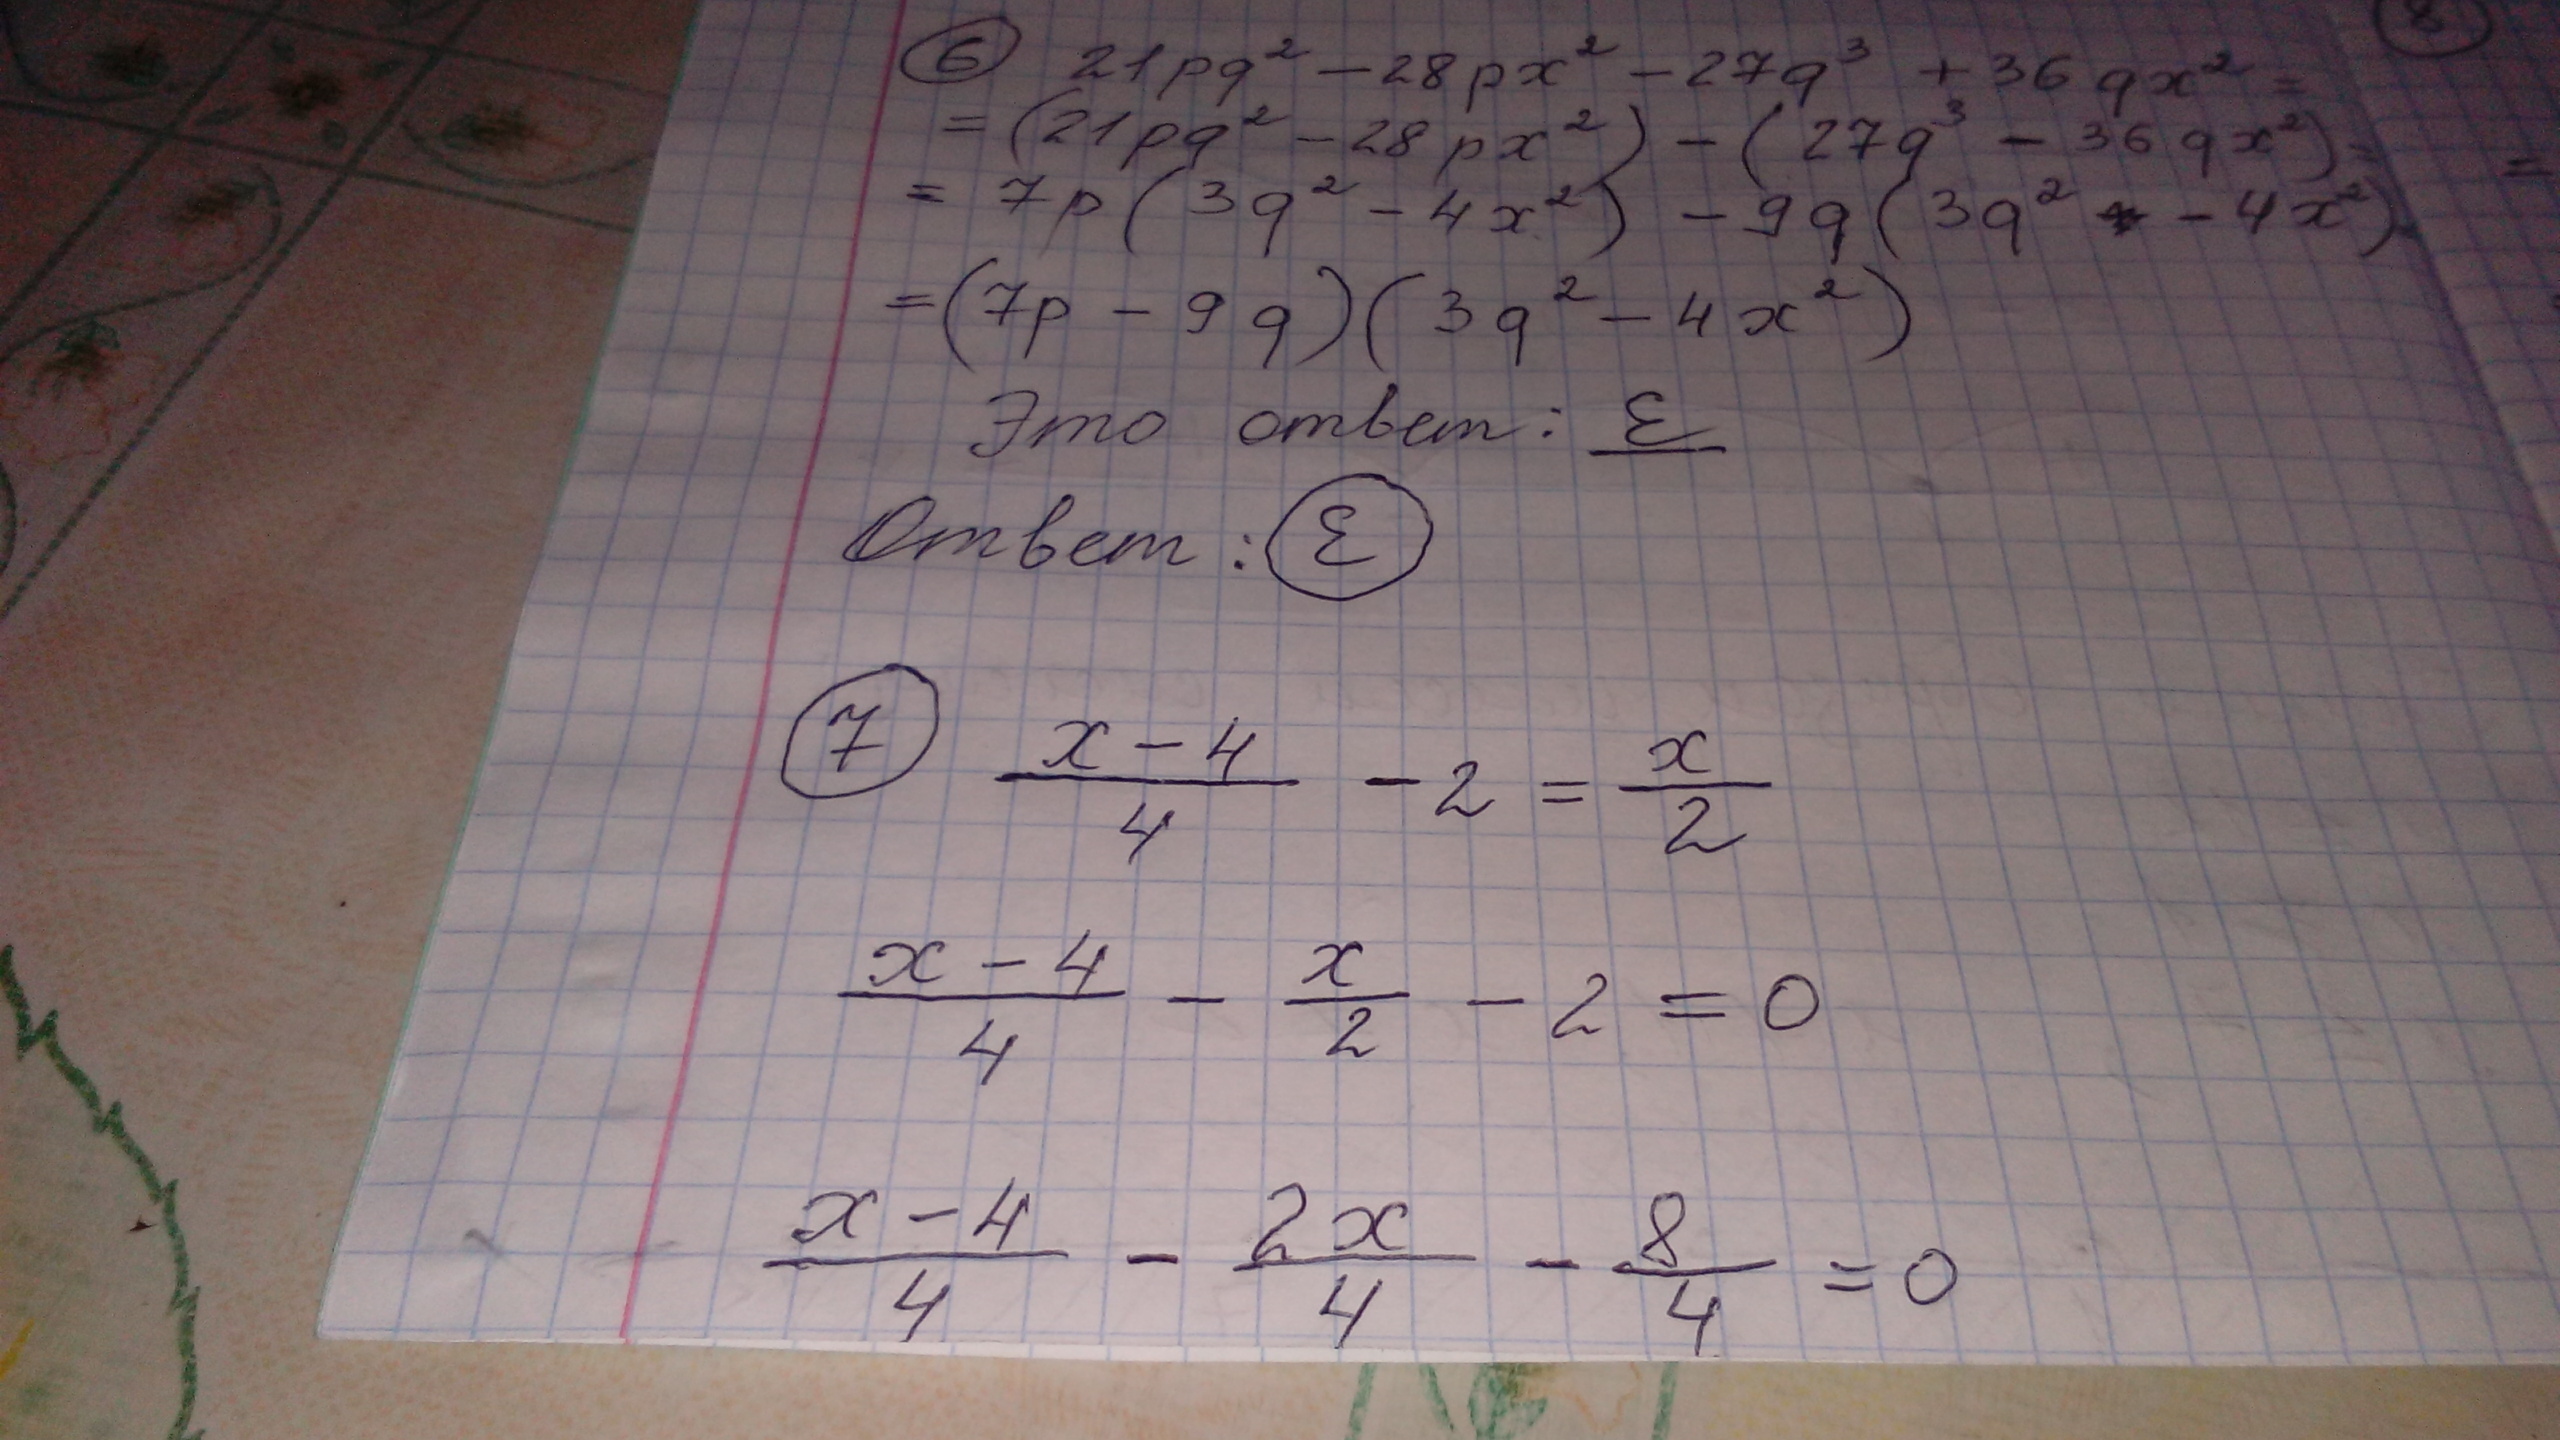 ⑥ 21pq² − 28px² − 27q³ + 36qx² =
= (21pq² − 28px²) − (27q³ − 36qx²) =
= 7p(3q² − 4x²) − 9q(3q² − 4x²) =
= (7p − 9q)(3q² − 4x²)
Это ответ: E
Ответ: E
⑦ (x−4)/4 − 2 = x/2
(x−4)/4 − x/2 − 2 = 0
(x−4)/4 − 2x/4 − 8/4 = 0
⑧
=